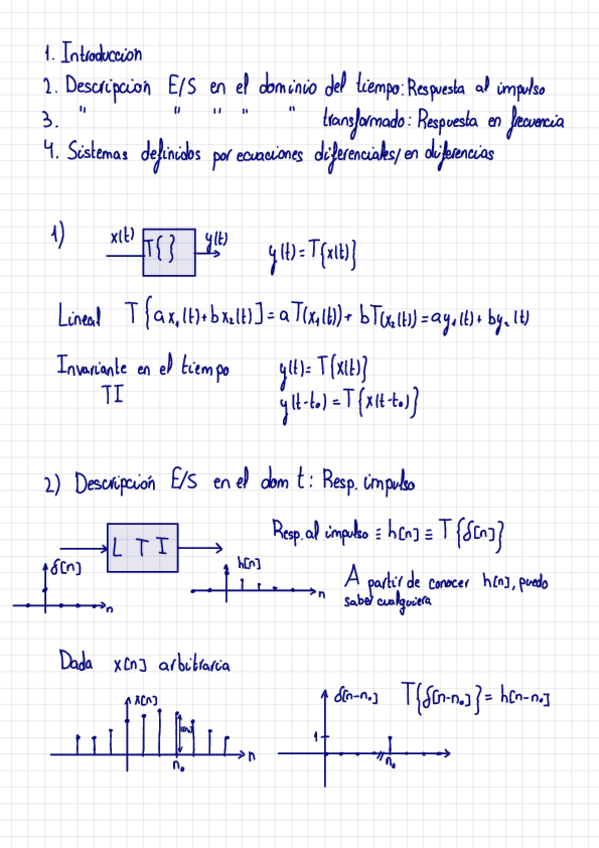 1. Introduccion
2. Descripción E/S en el dominio del tiempo: Respuesta al impulso
3. " " " " " transformado: Respuesta en frecuencia
4. Sistemas definidos por ecuaciones diferenciales/en diferencias
1) x(t) T{} y(t) y(t)=T{x(t)}
Lineal T{ax₁(t)+bx₂(t)]=aT(x₁(t))+bT(x₂(t))=ay₁(t)+by₂(t)
Invariante en el tiempo y(t)=T{x(t)}
TI y(t-t₀)=T{x(t-t₀)}
2) Descripción E/S en el dom t: Resp. impulso
LTI Resp. al impulso ≡ h[n] ≡ T{δ[n]}
δ[n] n h[n] n A partir de conocer h[n], puedo
saber cualquiera
Dada x[n] arbitraria
x[n] n₀ n
δ[n-n₀] T{δ[n-n₀]}=h[n-n₀]
1 n₀